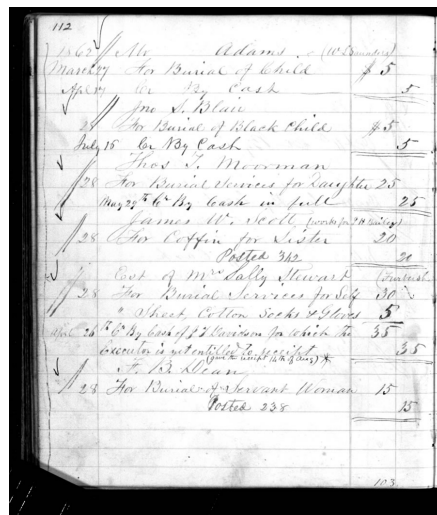 112
1862 Mr Adams (W Saunders)
March 27 For Burial of Child $ 5
Apr 17 Cr By Cash 5
Jno S. Blair
28 For Burial of Black Child $5
July 15 Cr By Cash 5
Thos T. Moorman
28 For Burial Services for Daughter 25
May 29th Cr By Cash in full 25
James W. Scott (works for
28 For Coffin for Sister 20
Posted 342 20
Est of Mrs Sally Stewart
28 For Burial Services for Self 30
" Sheet Cotton Socks & Gloves 5
April 26th Cr By Cash of J J Davidson for which the 35
Executor is entitled to receipt 35
(gave the receipt 14th of Aug)
B. Dean
28 For Burial of Servant Woman 15
Posted 238 15
103